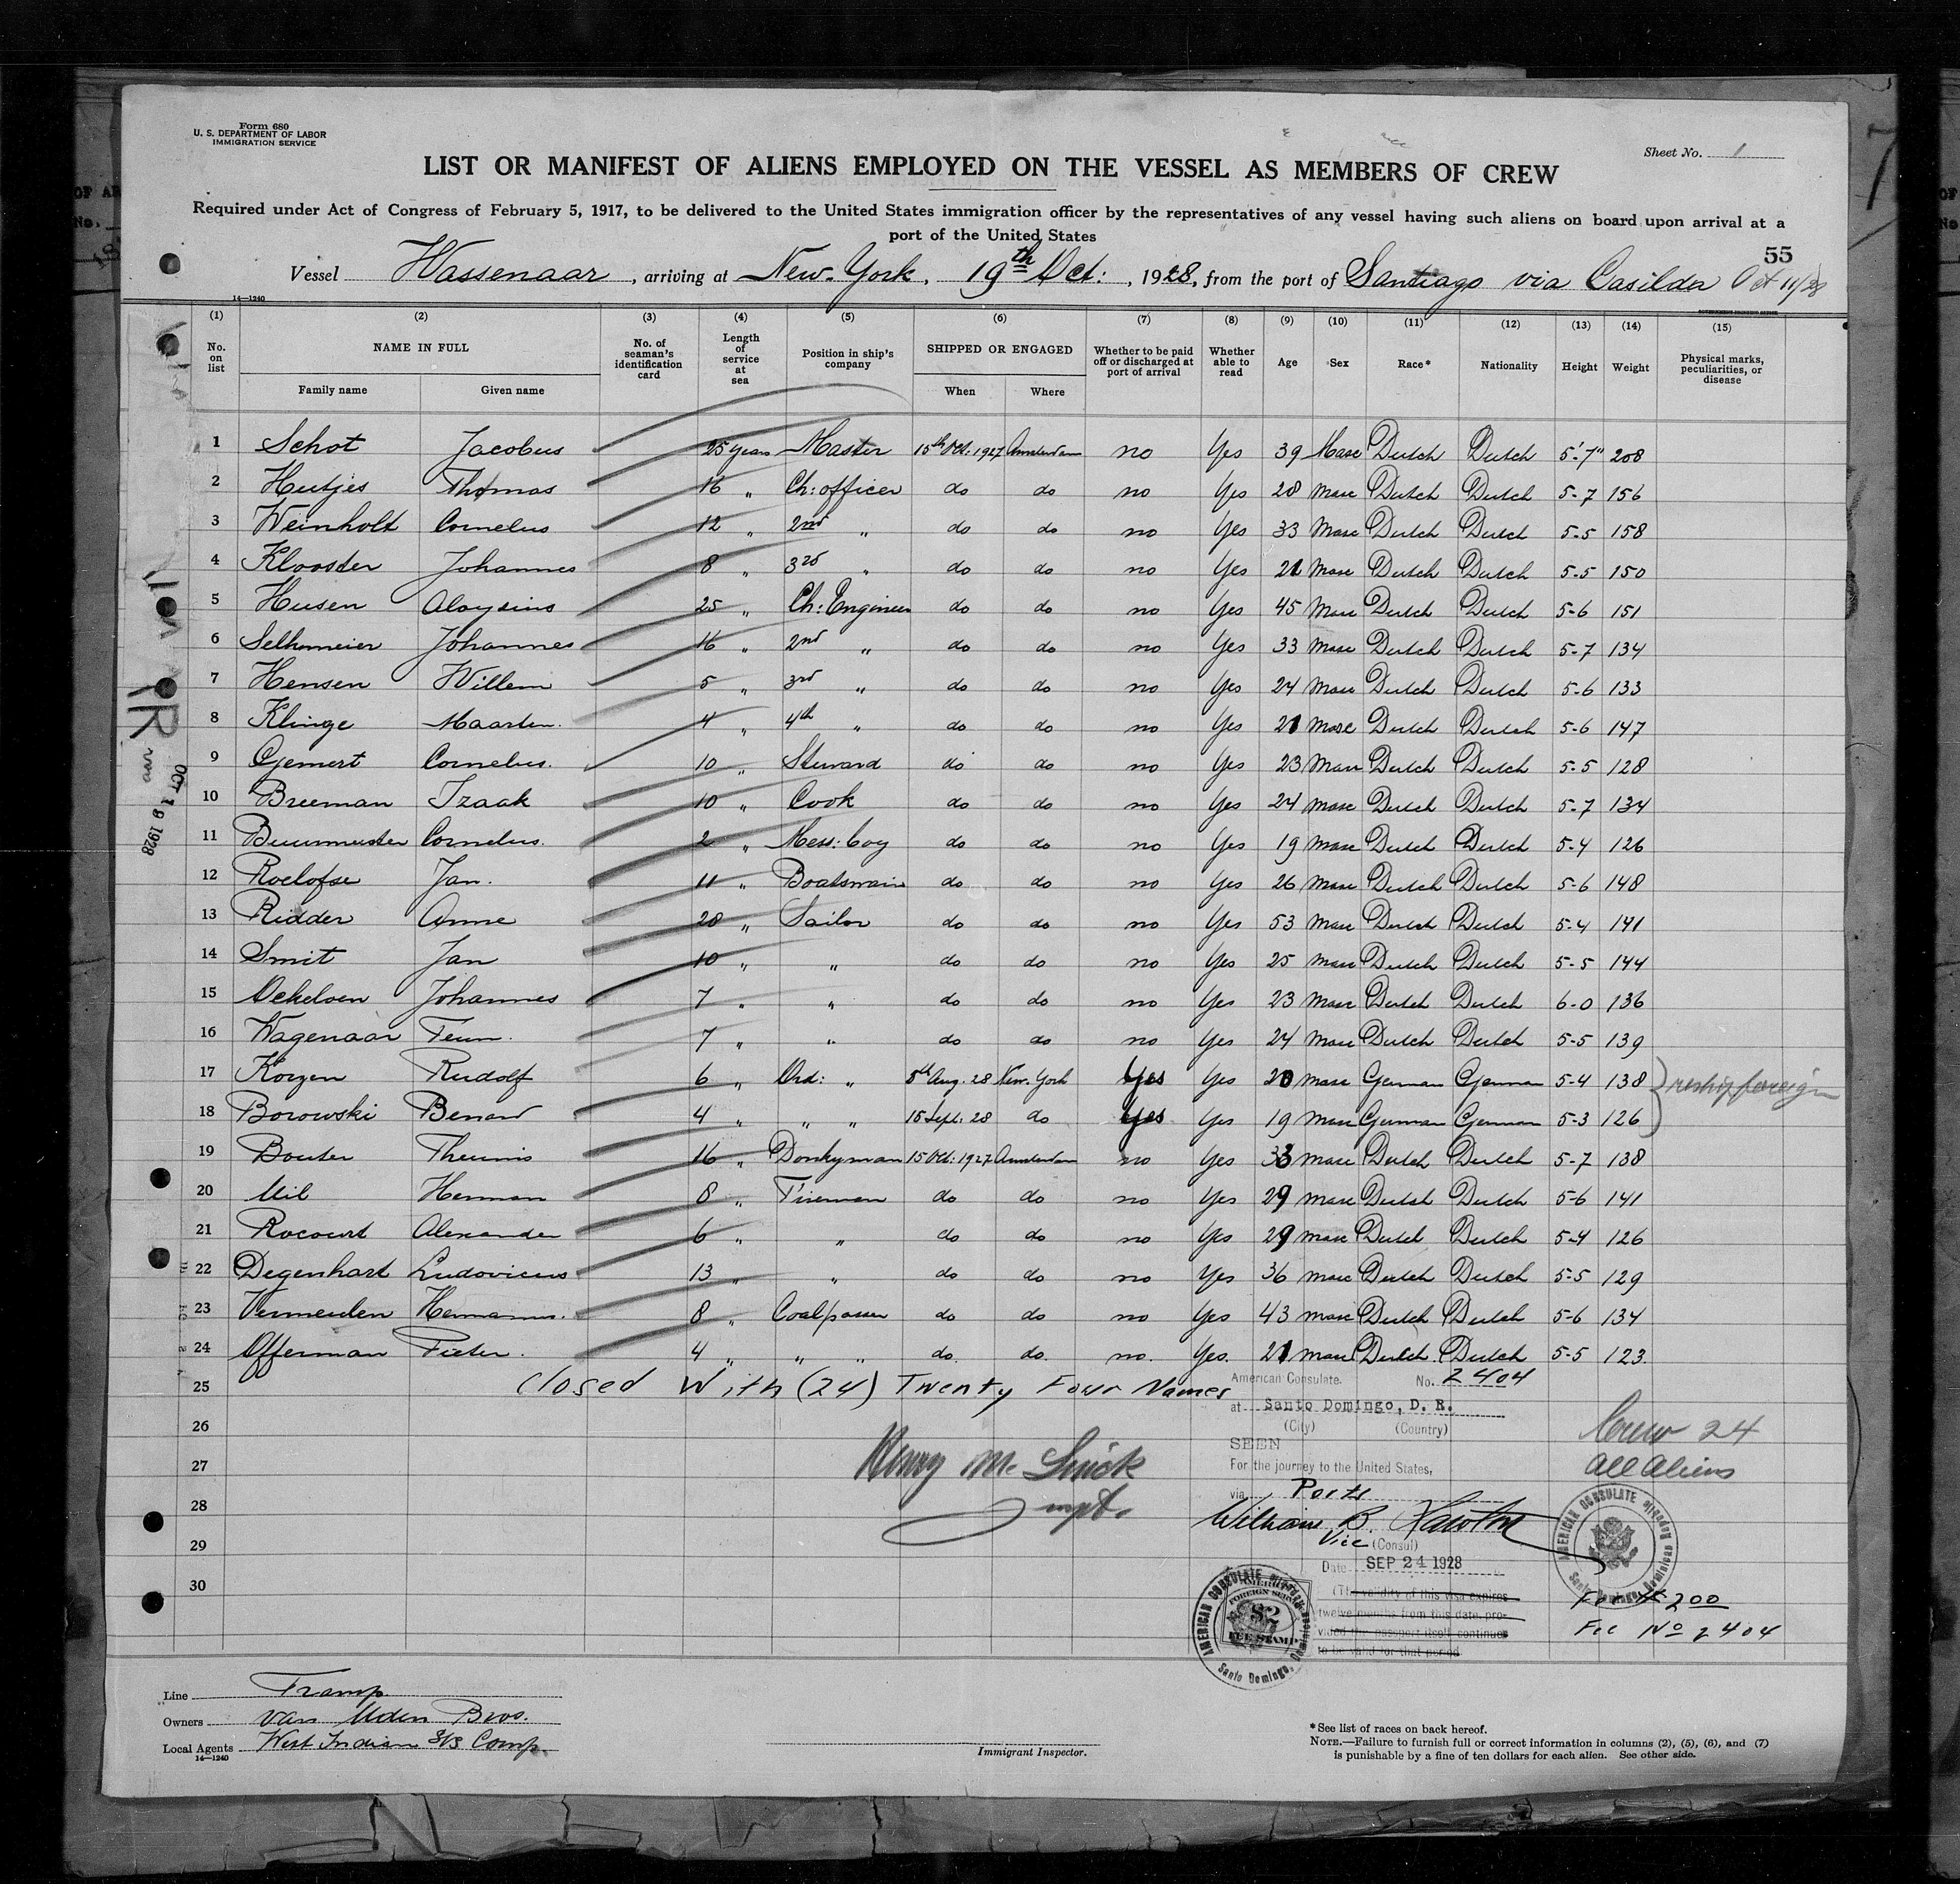 Form 680
U. S. DEPARTMENT OF LABOR
IMMIGRATION SERVICE
Sheet No. 1
LIST OR MANIFEST OF ALIENS EMPLOYED ON THE VESSEL AS MEMBERS OF CREW
Required under Act of Congress of February 5, 1917, to be delivered to the United States immigration officer by the representatives of any vessel having such aliens on board upon arrival at a
port of the United States
55
Vessel Wassenaar, arriving at New-York, 19th Oct:, 1928, from the port of Santiago via Casilda Oct 11/28
14—1240
(1) (2) (3) (4) (5) (6) (7) (8) (9) (10) (11) (12) (13) (14) (15)
No. on list NAME IN FULL Family name Given name No. of seaman's identification card Length of service at sea Position in ship's company SHIPPED OR ENGAGED When Where Whether to be paid off or discharged at port of arrival Whether able to read Age Sex Race* Nationality Height Weight Physical marks, peculiarities, or disease
1 Schot Jacobus 25 years Master 15th Oct. 1927 Amsterdam no Yes 39 Masc Dutch Dutch 5'-7" 208
2 Hutjes Thomas 16 „ Ch: officer do do no Yes 28 Masc Dutch Dutch 5-7 156
3 Weinholt Cornelus 12 „ 2nd „ do do no Yes 33 Masc Dutch Dutch 5-5 158
4 Klooster Johannes 8 „ 3rd „ do do no Yes 21 Masc Dutch Dutch 5-5 150
5 Husen Aloysius 25 „ Ch: Engineer do do no Yes 45 Masc Dutch Dutch 5-6 151
6 Selhomeier Johannes 16 „ 2nd „ do do no Yes 33 Masc Dutch Dutch 5-7 134
7 Hensen Willem 5 „ 3rd „ do do no Yes 24 Masc Dutch Dutch 5-6 133
8 Klinge Maarten. 4 „ 4th „ do do no Yes 21 Masc Dutch Dutch 5-6 147
9 Gemert Cornelus. 10 „ Steward do do no Yes 23 Masc Dutch Dutch 5-5 128
10 Breeman Izaak 10 „ Cook do do no Yes 24 Masc Dutch Dutch 5-7 134
11 Buurmeester Cornelus. 2 „ Mess: boy do do no Yes 19 Masc Dutch Dutch 5-4 126
12 Roelofse Jan. 11 „ Boatswain do do no Yes 26 Masc Dutch Dutch 5-6 148
13 Ridder Anne 20 „ Sailor do do no Yes 53 Masc Dutch Dutch 5-4 141
14 Smit Jan 10 „ „ do do no Yes 25 Masc Dutch Dutch 5-5 144
15 Ockeloen Johannes 7 „ „ do do no Yes 23 Masc Dutch Dutch 6-0 136
16 Wagenaar Teun. 7 „ „ do do no Yes 24 Masc Dutch Dutch 5-5 139
17 Korzen Rudolf 6 „ Ord: „ 5th Aug. 28 New. York Yes Yes 20 Masc German German 5-4 138 reship foreign
18 Borowski Benard 4 „ „ „ 15 Sept. 28 do Yes Yes 19 Masc German German 5-3 126
19 Bouter Theunis 16 „ Donkyman 15 Oct. 1927 Amsterdam no Yes 33 Masc Dutch Dutch 5-7 138
20 Mil Herman 8 „ Fireman do do no Yes 29 Masc Dutch Dutch 5-6 141
21 Rocourt Alexander 6 „ „ do do no Yes 29 Masc Dutch Dutch 5-4 126
22 Degenhart Ludovicus 13 „ „ do do no Yes 36 Masc Dutch Dutch 5-5 129
23 Vermeulen Hermanus. 8 „ Coalpasser do do no Yes 43 Masc Dutch Dutch 5-6 134
24 Offerman Pieter. 4 „ „ „ do. do. no. Yes. 21 Masc Dutch. Dutch 5-5 123.
25 Closed With (24) Twenty Four Names
26
27
28
29
30
OCT 19 1928
Henry M.
American Consulate. No. 2404
at Santo Domingo, D. R.
(City) (Country)
SEEN
For the journey to the United States,
via Ports
William B.
Vice (Consul)
Date SEP 24 1928
(The validity of this visa expires
twelve months from this date, pro-
vided the passport itself continues
to be valid for that period
Crew 24
All Aliens
AMERICAN CONSULATE
Santo Domingo, Dominican Republic
AMERICAN CONSULATE
AMERICAN
FOREIGN SERVICE
$2
FEE STAMP
Santo Domingo,
Fee $ 200
Fee No 2404
Line Tramp
Owners van Uden Bros.
Local Agents West Indian S/S Comp.
14—1240
Immigrant Inspector.
*See list of races on back hereof.
NOTE.—Failure to furnish full or correct information in columns (2), (5), (6), and (7)
is punishable by a fine of ten dollars for each alien. See other side.